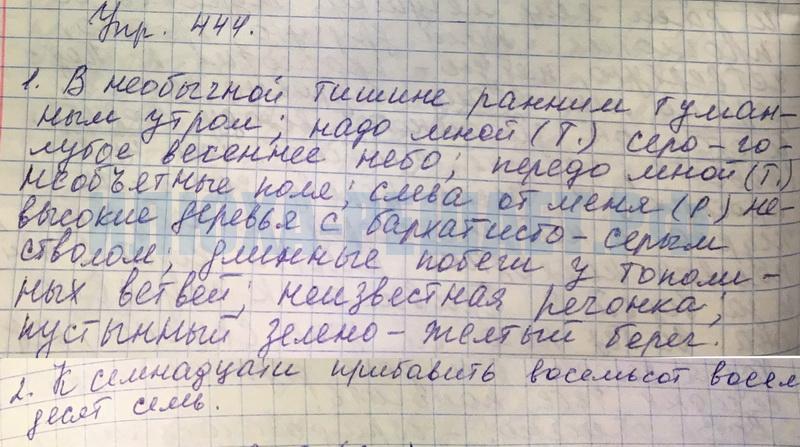 Упр. 444.
1. В необычной тишине ранним туман-
ным утром; надо мной (Т.) серо-го-
лубое весеннее небо; передо мной (Т.)
необъятные поля; слева от меня (Р.) не-
высокие деревья с бархатисто-серым
стволом; длинные побеги у тополи-
ных ветвей; неизвестная речонка;
пустынный зелено-желтый берег.
2. К семнадцати прибавить восемьсот восем
десят семь.